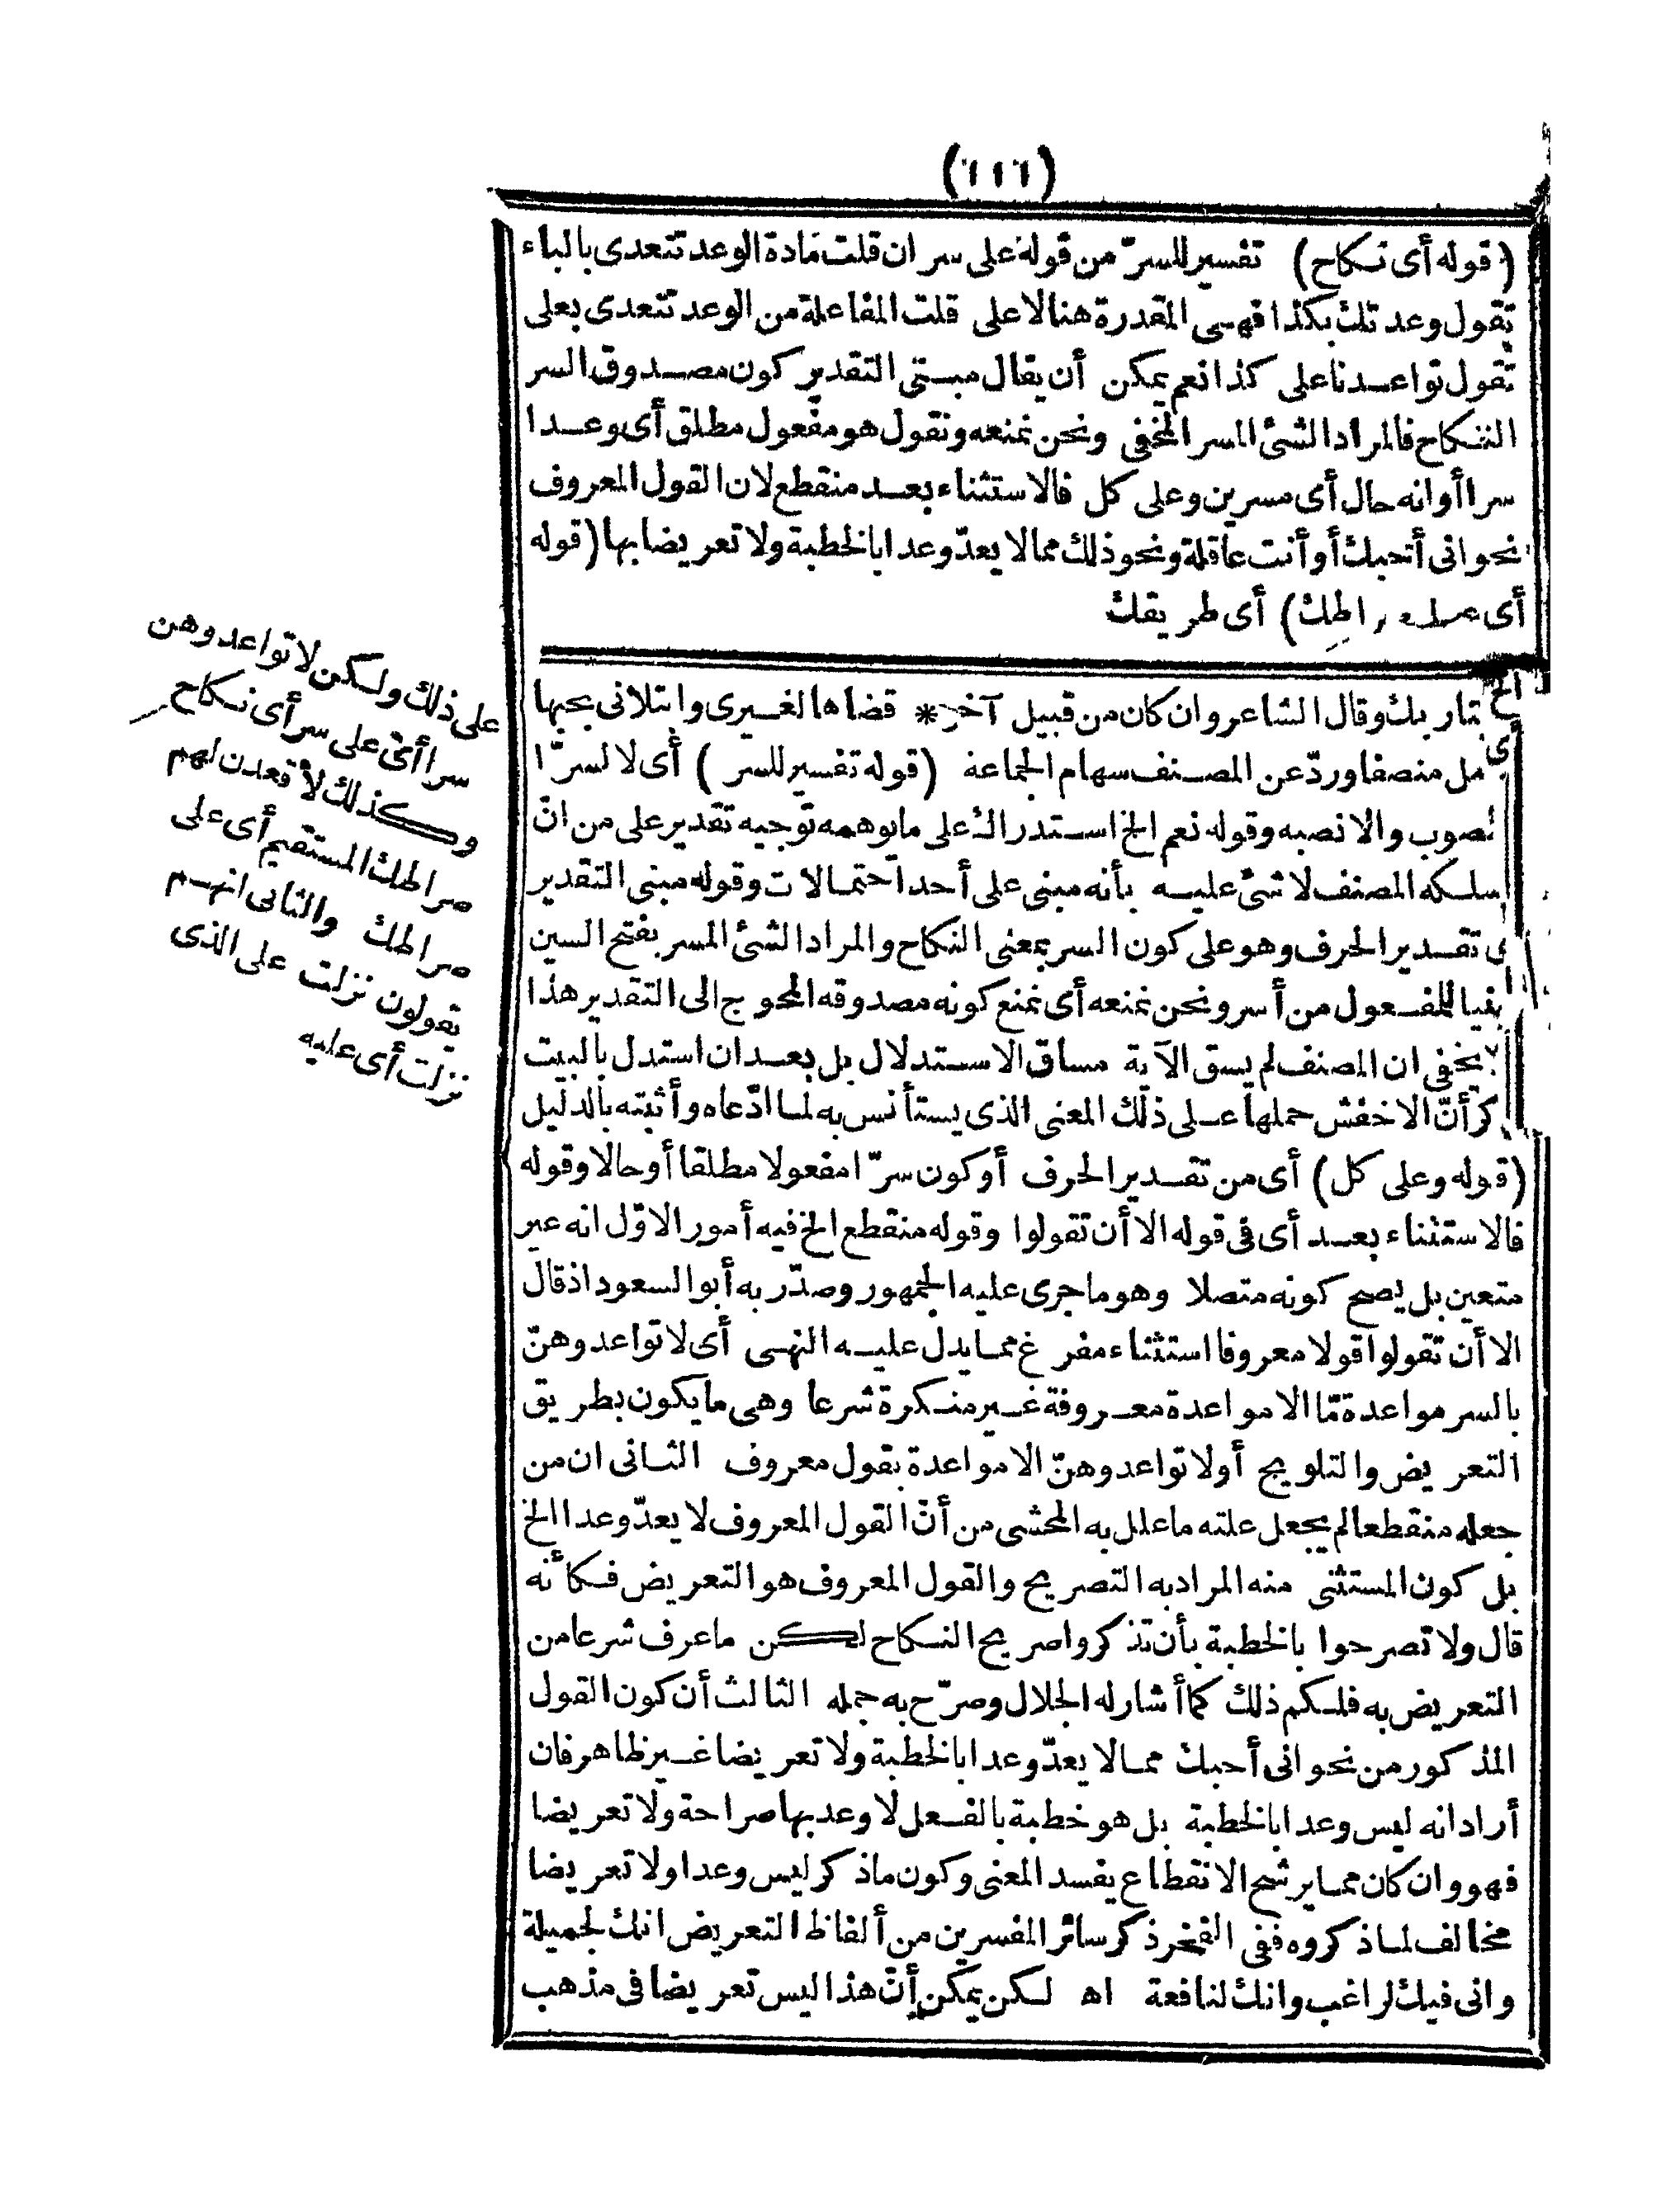 (١١٦)
(قوله أى نكاح) تفسير للسرّ من قوله على سر ان قلت مادة الوعد تتعدى بالباء
تقول وعدتك بكذا فهى المقدرة هنا لا على قلت المفاعلة من الوعد تتعدى بعلى
تقول تواعدنا على كذا نعم يمكن أن يقال مبنى التقدير كون مصدوق السر
النكاح فالمراد الشئ المسر المخفى ونحن نمنعه ونقول هو مفعول مطلق أى وعدا
سرا أو انه حال أى مسرين وعلى كل فالاستثناء بعد منقطع لان القول المعروف
نحو انى أحبك أو أنت عاقلة ونحو ذلك مما لا يعدّ وعدا بالخطبة ولا تعريضا بها (قوله
أى على صراطك) أى طريقك
على ذلك ولكن لا تواعدوهن
سرا أى على سر أى نكاح
وكذلك لأ قعدن لهم
صراطك المستقيم أى على
صراطك والثانى انهم
يقولون نزلت على الذى
نزلت أى عليه
تباريك وقال الشاعر وان كان من قبيل آخر * قضاها لغيرى وابتلانى بحبها
مل منصفا وردّ عن المصنف سهام الجماعة (قوله تفسير للسر) أى لا لسرّا
لصوب والا نصبه وقوله نعم الخ استدراك على ما يوهمه توجيه تقدير على من انّ
سلكه المصنف لا شئ عليه بأنه مبنى على أحد احتمالات وقوله مبنى التقدير
ى تقدير الحرف وهو على كون السر بمعنى النكاح والمراد الشئ المسر بفتح السين
بنيا للمفعول من أسر ونحن نمنعه أى نمنع كونه مصدوقه المحوج الى التقدير هذا
يخفى ان المصنف لم يسق الآية مساق الاستدلال بل بعد ان استدل بالبيت
كر أنّ الاخفش حملها على ذلك المعنى الذى يستأنس به لما ادّعاه وأثبته بالدليل
(قوله وعلى كل) أى من تقدير الحرف أو كون سرّا مفعولا مطلقا أو حالا وقوله
فالاستثناء بعد أى فى قوله الا أن تقولوا وقوله منقطع الخ فيه أمور الاوّل انه غير
متعين بل يصح كونه متصلا وهو ما جرى عليه الجمهور وصدّر به أبو السعود اذ قال
الا أن تقولوا قولا معروفا استثناء مفرغ مما يدل عليه النهى أى لا تواعدوهنّ
بالسر مواعدة مّا الا مواعدة معروفة غير منكرة شرعا وهى ما يكون بطريق
التعريض والتلويح أو لا تواعدوهنّ الا مواعدة بقول معروف الثانى ان من
جعله منقطعا لم يجعل علته ما علل به المحشى من أنّ القول المعروف لا يعدّ وعدا الخ
بل كون المستثنى منه المراد به التصريح والقول المعروف هو التعريض فكأنه
قال ولا تصرحوا بالخطبة بأن تذكروا صريح النكاح لكن ما عرف شرعا من
التعريض به فلكم ذلك كما أشار له الجلال وصرّح به جمله الثالث أن كون القول
المذكور من نحو انى أحبك مما لا يعدّ وعدا بالخطبة ولا تعريضا غير ظاهر فان
أراد انه ليس وعدا بالخطبة بل هو خطبة بالفعل لا وعد بها صراحة ولا تعريضا
فهو وان كان مما يرشح الانقطاع يفسد المعنى وكون ما ذكر ليس وعدا ولا تعريضا
مخالف لما ذكروه ففى الفخر ذكر سائر المفسرين من ألفاظ التعريض انك لجميلة
وانى فيك لراغب وانك لنافعة اه لكن يمكن أنّ هذا ليس تعريضا فى مذهب